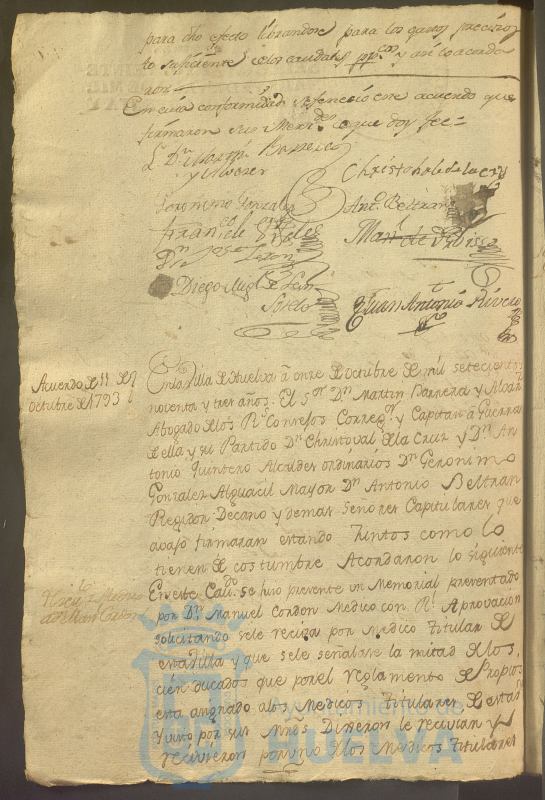 para dho efecto librandose para los gastos precisos
lo suficiente de los caudales pp.cos y asi lo acorda
ron
En cuia conformidad se fenecio este acuerdo que
firmaron sus Merds. de que doy fee=
L. Dn. Martin Barrera
y Alvarez
Christobal de la Cruz
Geronimo Gonzalez
Anto. Beltran
Dn. Jose
Diego Migl. de
Soveto
Juan Antonio Rivero
Acuerdo de 11 de
octubre de 1793
En la Villa de Huelva á once de Octubre de mil setecientos
noventa y tres años. El Sor. Dn. Martin Barrera y Alvarz.
Abogado de los Rs. Consejos Corregor. y Capitan á Guerra
de ella y su Partido Dn. Christoval de la Cruz y Dn. An
tonio Quintero Alcaldes ordinarios Dn. Geronimo
Gonzalez Alguacil Mayor Dn. Antonio Beltran
Regidor Decano y demas señores Capitulares que
avajo firmaran estando Juntos como lo
tienen de costumbre Acordaron lo siguiente
En este Cavdo. se hizo presente un Memorial presentado
por Dn. Manuel Cordon Medico con Rl. Aprovacion
solicitando se le reciva por Medico Titular de
esta Villa y que se le señalase la mitad de los
cien ducados que por el reglamento de Propios
esta asignado a los Medicos Titulares de esta
y visto por sus Mrds. Dijeron le recivian y
recivieron por uno de los Medicos Titulares
HUELVA